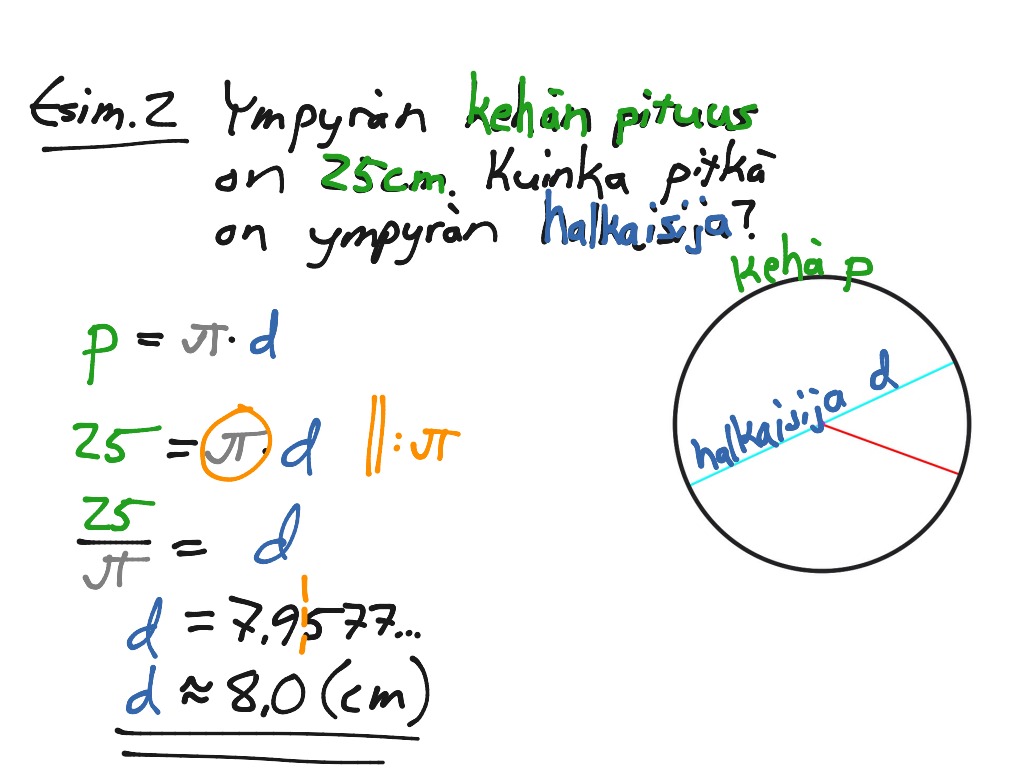 Esim.2 Ympyrän kehän pituus
on 25cm. Kuinka pitkä
on ympyrän halkaisija?
kehä p
p = π · d
halkaisija d
25 = π · d ‖ : π
25
π
= d
d = 7,9577...
d ≈ 8,0 (cm)